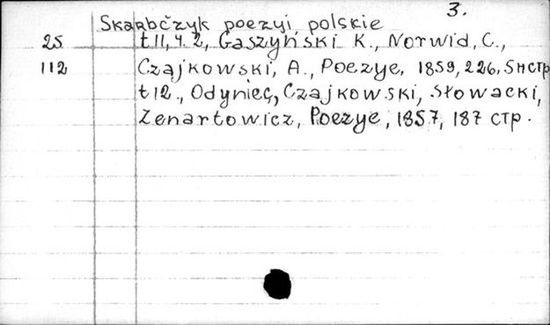 3.
Skarbčzyk poezyi polskie
25 t.11, ч. 2, Gaszyński K., Norwid, C.,
112 Czajkowski, A., Poezye, 1859, 226, 5нстр
t 12., Odyniec, Czajkowski, Słowacki,
Zenartowicz, Poezye, 1857, 187 стр.